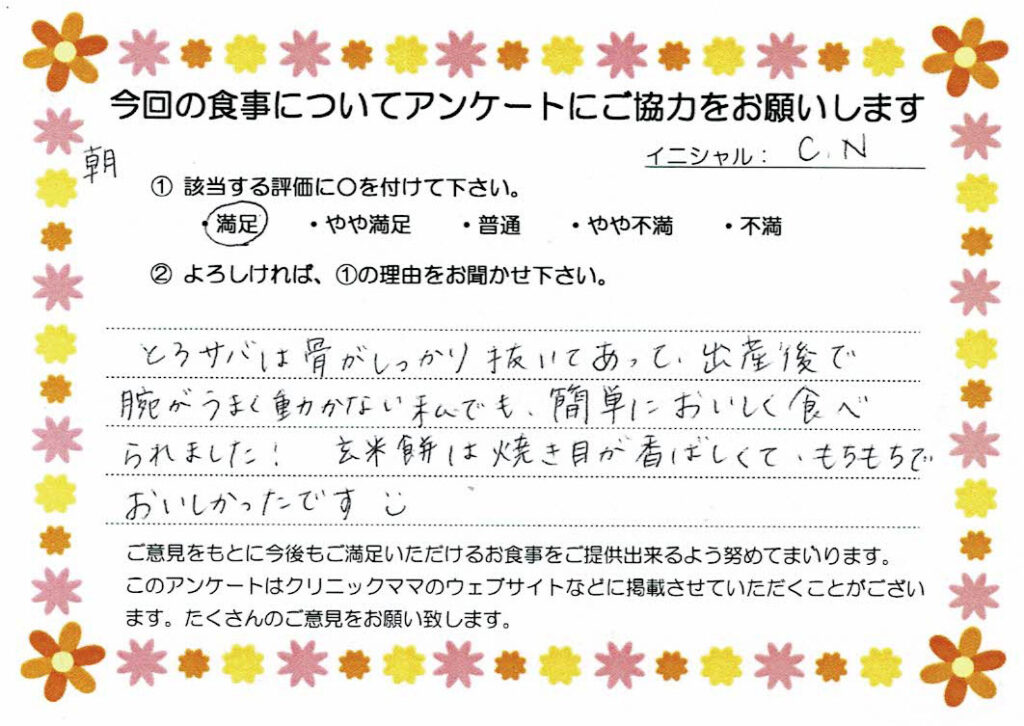 今回の食事についてアンケートにご協力をお願いします
朝
イニシャル： C.N
① 該当する評価に〇を付けて下さい。
・満足 ・やや満足 ・普通 ・やや不満 ・不満
② よろしければ、①の理由をお聞かせ下さい。
とろサバは骨がしっかり抜いてあって、出産後で
腕がうまく動かない私でも、簡単においしく食べ
られました！ 玄米餅は焼き目が香ばしくて、もちもちで
おいしかったです
ご意見をもとに今後もご満足いただけるお食事をご提供出来るよう努めてまいります。
このアンケートはクリニックママのウェブサイトなどに掲載させていただくことがござい
ます。たくさんのご意見をお願い致します。